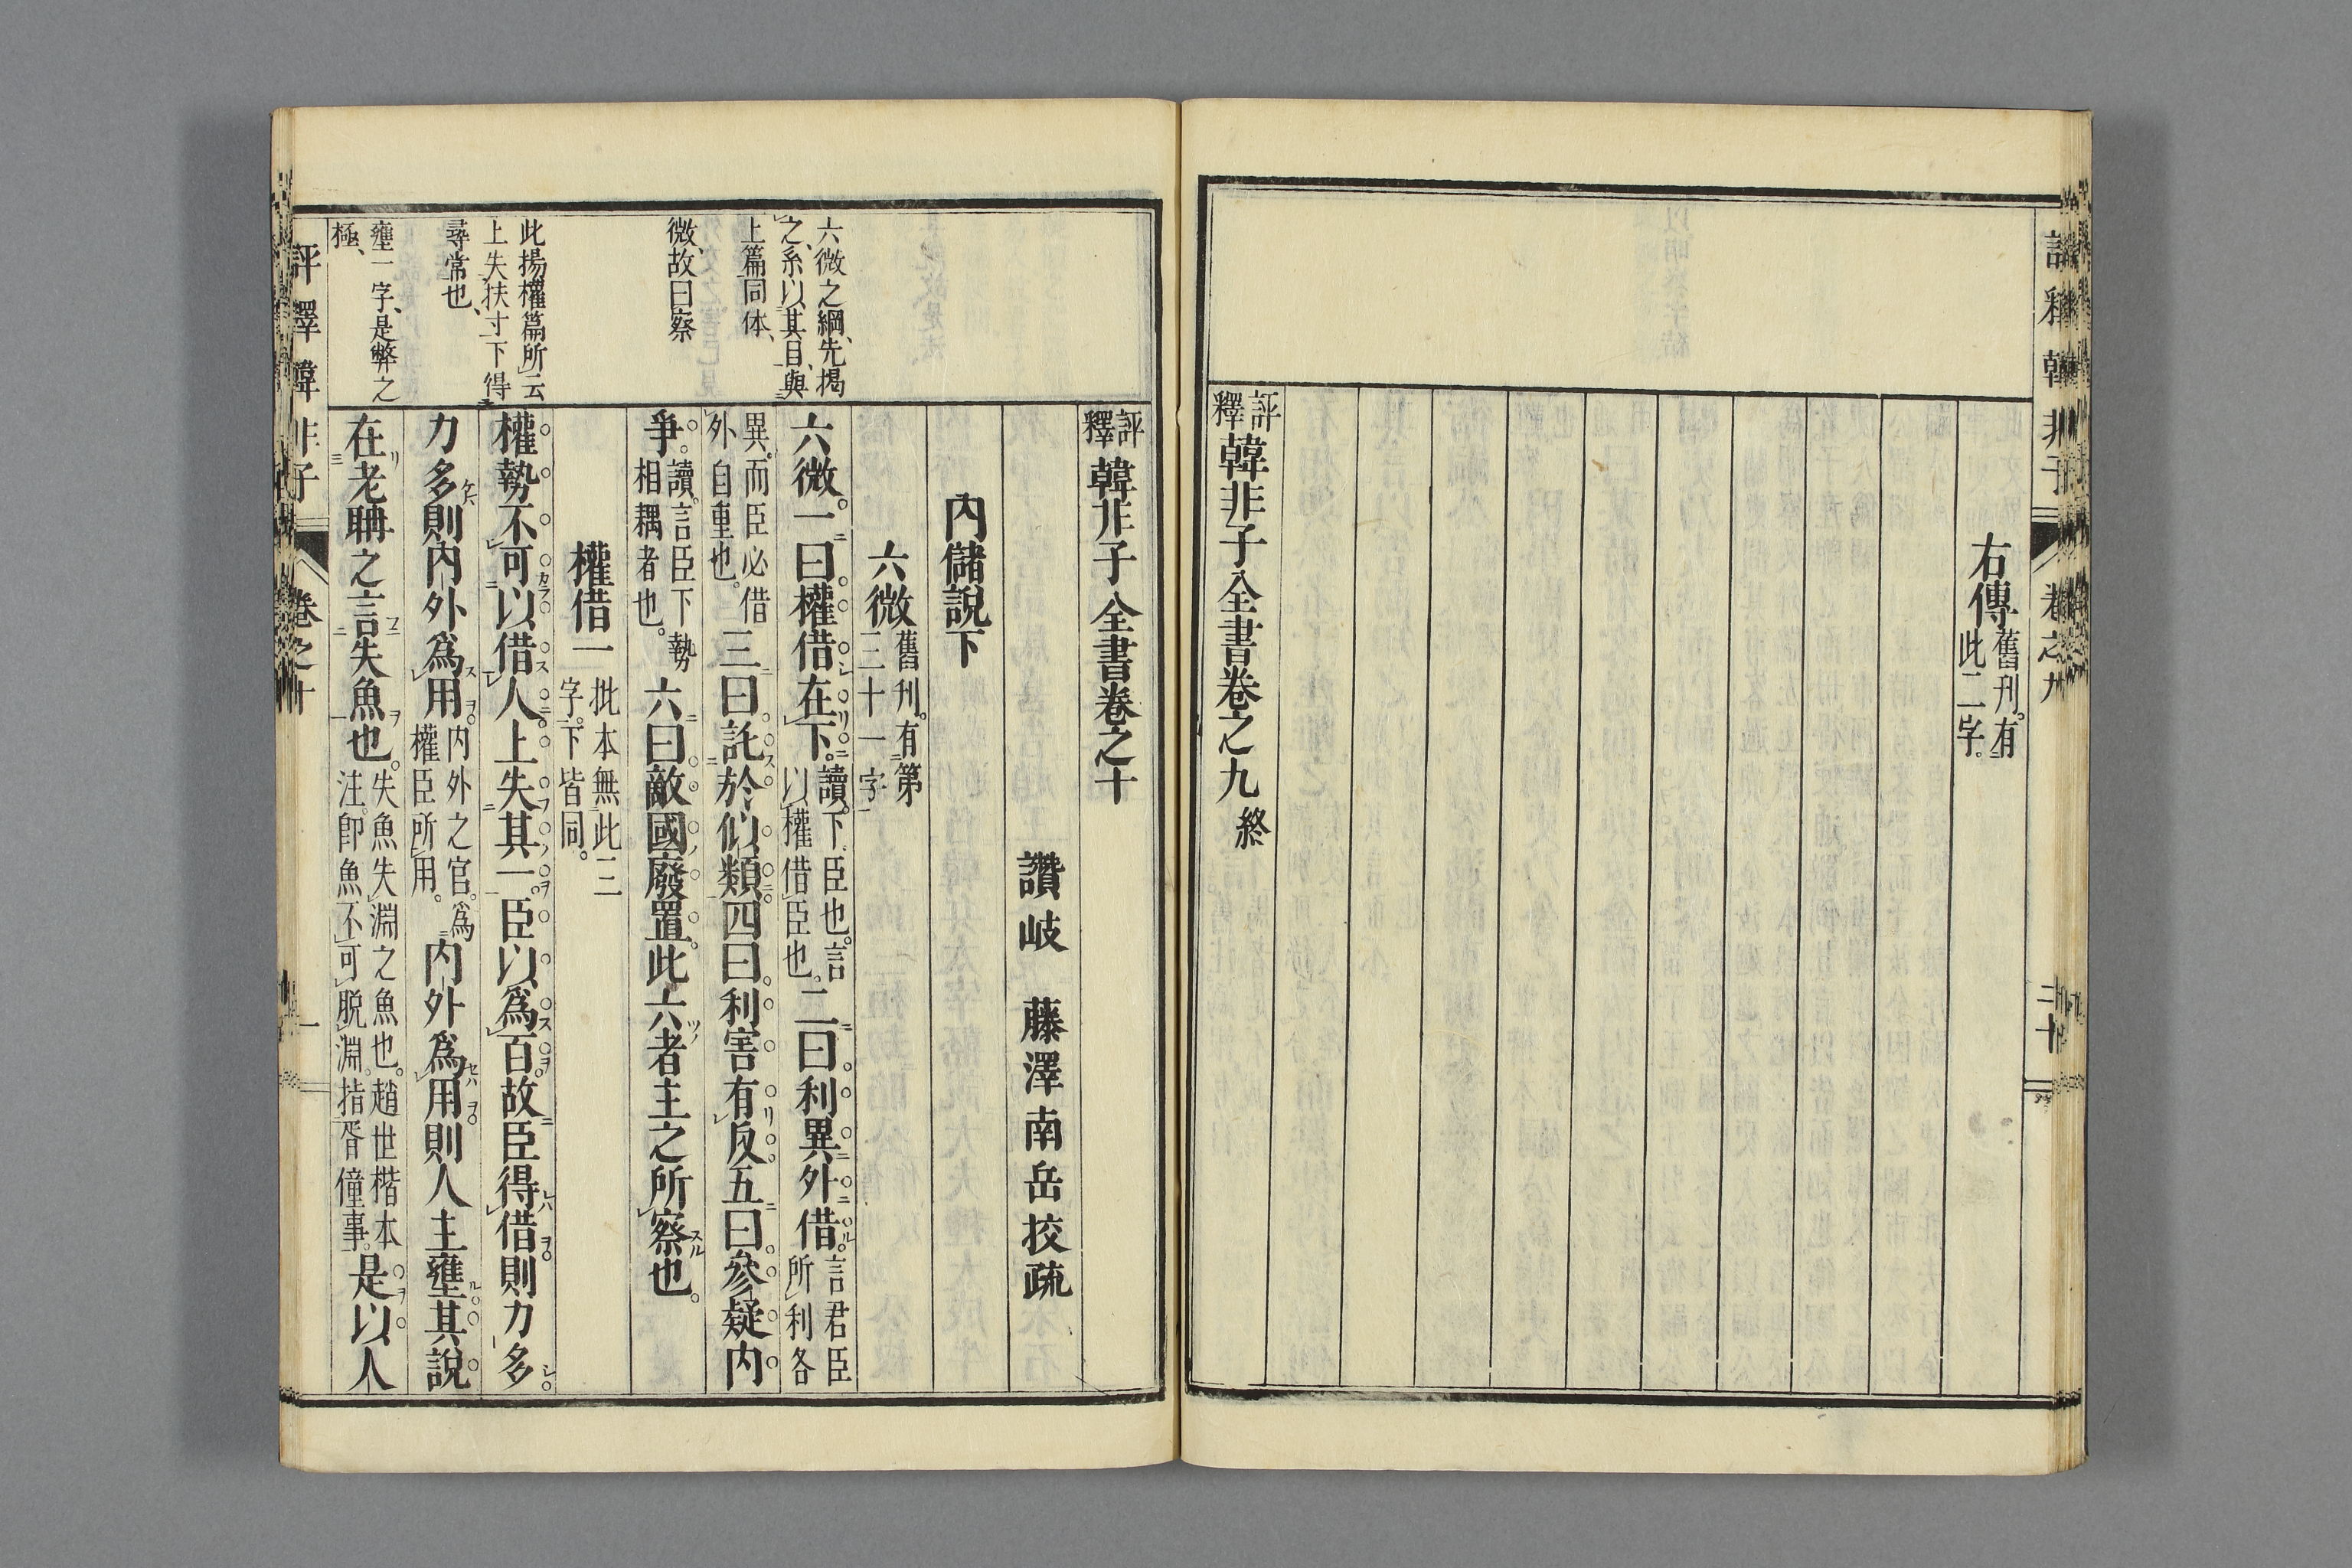 評釋韓非子 卷之九 二十
右傳 舊刊有此二字。
評釋韓非子全書卷之九 終
評釋韓非子全書卷之十
讚岐 藤澤南岳挍疏
內儲說下
六微 舊刊。有第三十一字
六微。一曰權借在下。讀。下臣也。言以權借臣也。二曰利異外借。言君臣所利各
異。而臣必借外自重也。三曰託於似類。四曰利害有反。五曰參疑內
爭。讀。言臣下勢相耦者也。六曰敵國廢置。此六者主之所察也。
權借一 批本無此三字。下皆同。
權勢不可以借人。上失其一。臣以爲百。故臣得借則力多
力多則內外爲用。內外之官。爲權臣所用。內外爲用則人主壅。其說
在老聃之言失魚也。失魚失淵之魚也。趙世楷本注。卽魚不可脫淵。指胥僮事。是以人
六微之綱、先揭
之、系以其目、與
上篇同体、
微、故曰察
此揚權篇所云
上失扶寸下得
尋常也、
壅一字、是弊之
極、
評釋韓非子 卷之十 一